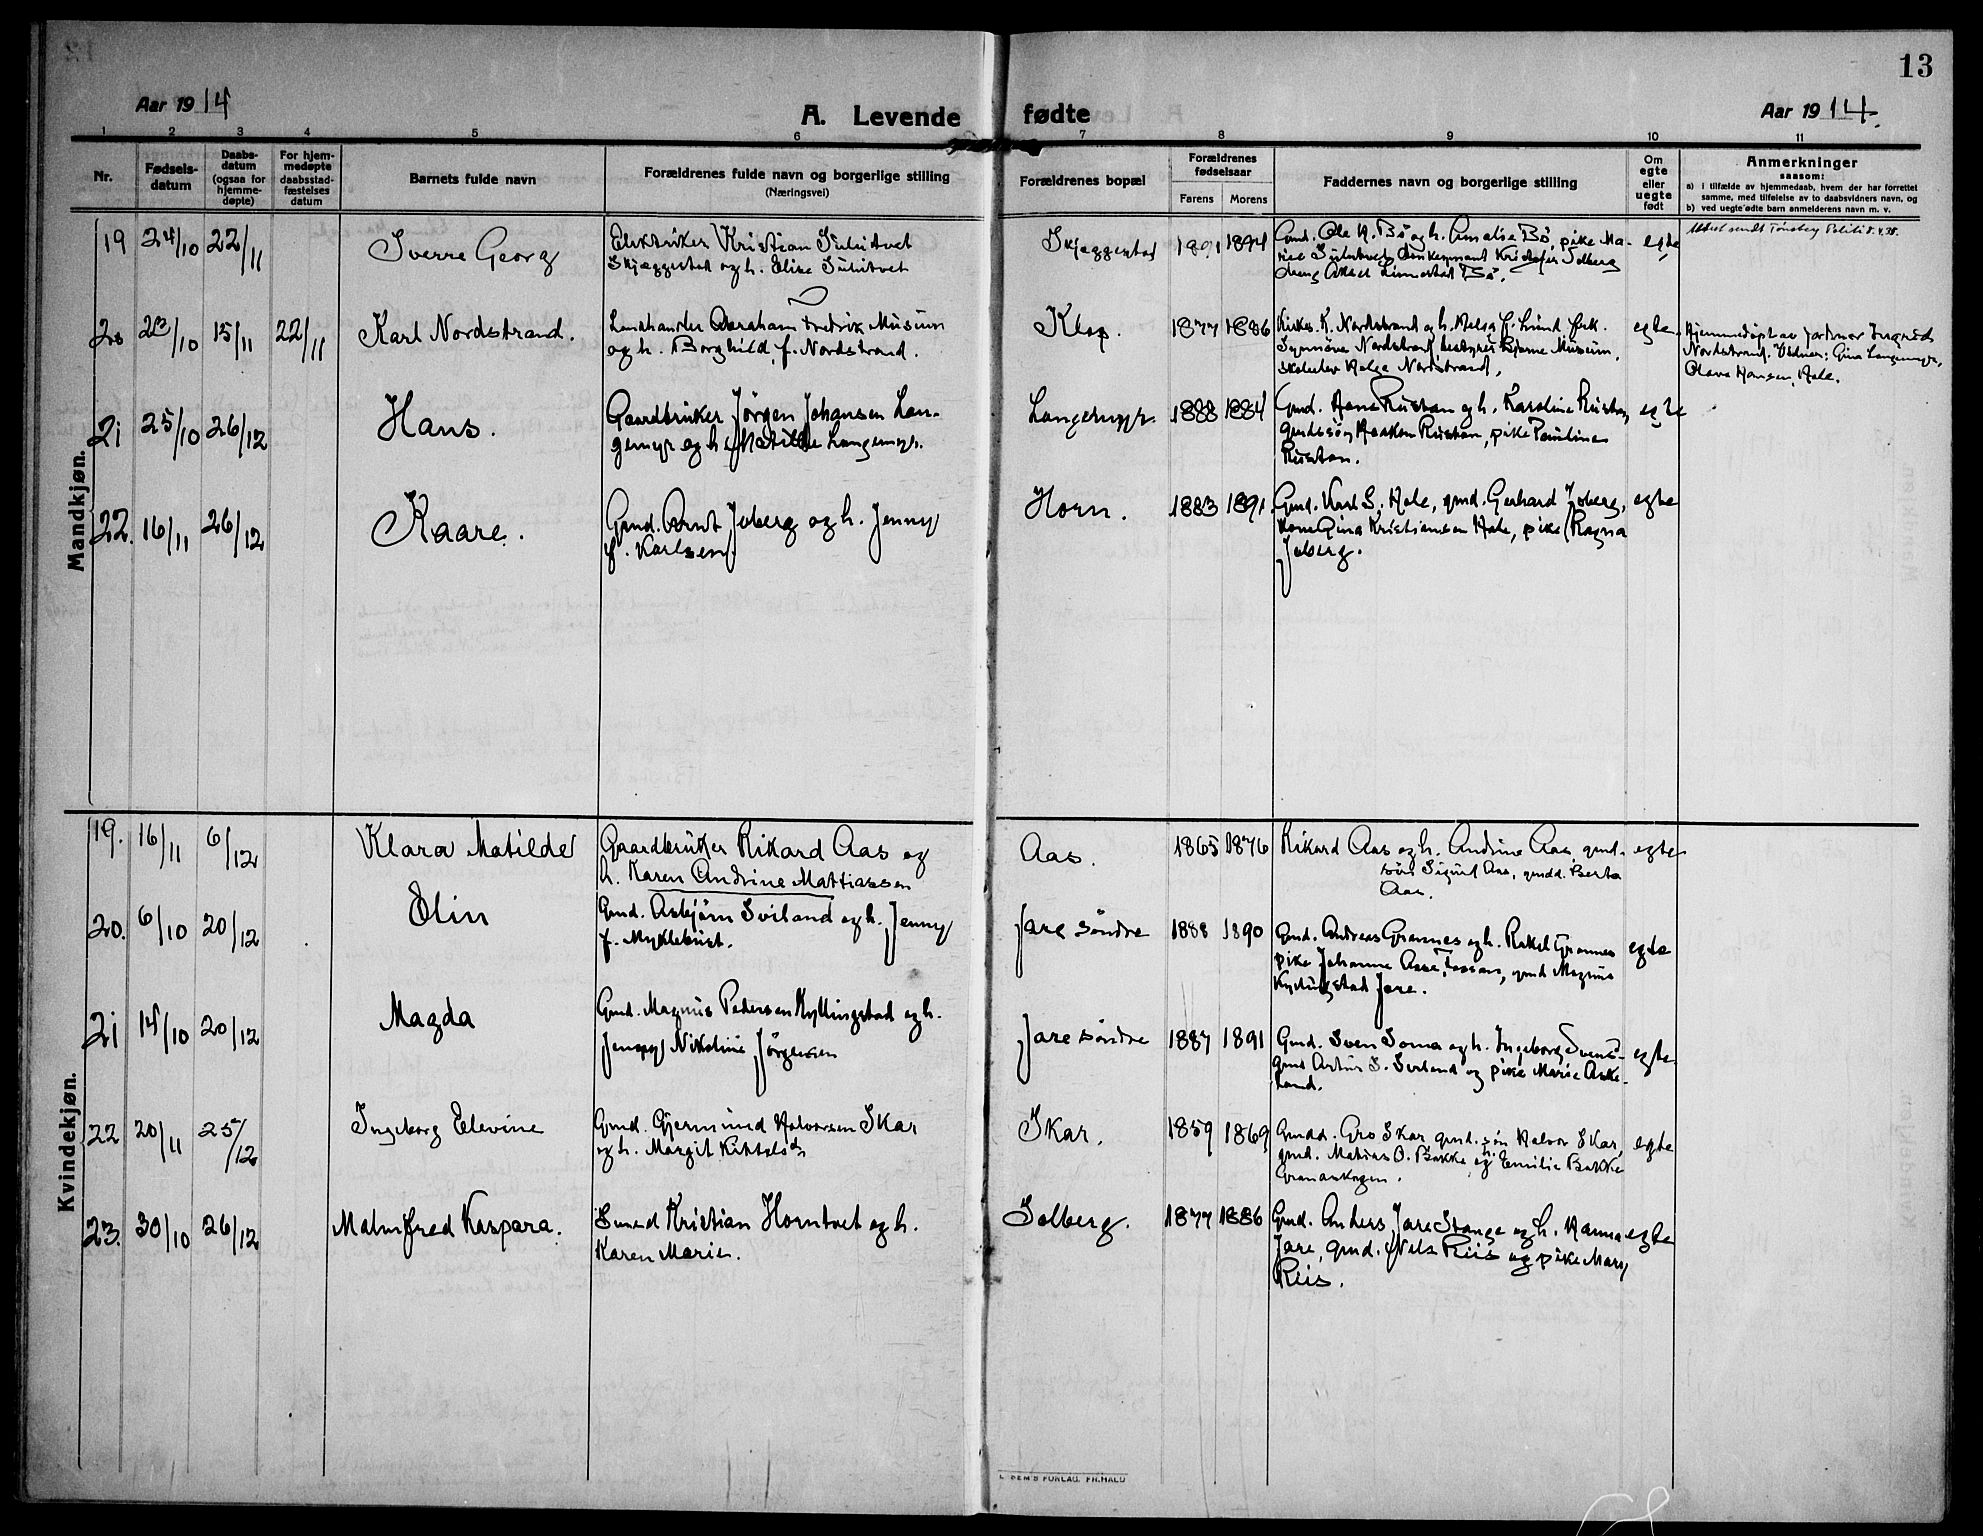 13
Aar 1914
A. Levende fødte
Aar 1914.
1 2 3 4 5 6 7 8 9 10 11
Nr.
Fødsels-
datum
Daabs-
datum
(ogsaa for
hjemme-
døpte)
For hjem-
medøpte
daabsstad-
fæstelses
datum
Barnets fulde navn
Forældrenes fulde navn og borgerlige stilling
(Næringsvei)
Forældrenes bopæl
Forældrenes
fødselsaar
Farens Morens
Faddernes navn og borgerlige stilling
Om
egte
eller
uegte
født
Anmerkninger
saasom:
a) i tilfælde av hjemmedaab, hvem der har forrettet
samme, med tilføielse av to daabsvidners navn, og
b) ved uegte fødte barn anmelderens navn m. v.
Mandkjøn.
19 24/10 22/11 Sverre Georg
Elektriker Kristian
Skjæggestad og h. Elise
Skjæggestad 1891 1894
Gmd. Ole A. Bø og h. Amalie Bø, pike Ma-
Kristofer Solberg
dreng Aksel Linnestad Bø.
egte
Attest sendt Tønsberg Politi
20 23/10 15/11 22/11 Karl Nordstrand.
Landhandler Abraham Fredrik Museum
og h. Borghild f. Nordstrand.
Klop. 1877 1886
Kirkes. K. Nordstrand og h. Helga f. Lund, frk.
Synnöve Nordstrand, bestyrer Bjarne Museum,
skoleelev Helge Nordstrand.
egte.
Hjemmedøpt av jordmor Ingrid
Nordstrand. Vidner: Gina Langemyr,
Olava Hansen, Hale.
21 25/10 26/12 Hans.
Gaardbruker Jörgen Johansen Lan-
gemyr og h. Matilde Langemyr.
Langemyr. 1888 1884
Gmd. Hans Rustan og h. Karoline Rustan,
gmdssøn Haakon Rustan, pike Pauline
Rustan.
egte
22. 16/11 26/12 Kaare.
Gmd. Arnt Joberg og h. Jenny
f. Karlsen.
Horn. 1883 1891.
Gmd. Karl S. Hale, gmd. Gerhard Joberg,
kone Gina Kristiansen Hale, pike Ragna
Joberg.
egte
Kvindekjøn.
19. 16/11 6/12 Klara Matilde
Gaardbruker Rikard Aas og
h. Karen Andrine Mattiassen
Aas. 1865 1876
Rikard Aas og h. Andrine Aas, gmd.
søn Sigurd Aas, gmdd. Berta
Aas.
egte
20. 6/10 20/12 Elin
Gmd. Asbjørn Sviland og h. Jenny
f. Myklebust.
Jare søndre 1888 1890
Gmd. Andreas Grannes og h. Rakel Grannes
pike Johanne Aase, gmd Magnus
Kyllingstad Jare.
egte
21 14/10 20/12 Magda
Gmd. Magnus Pedersen Kyllingstad og h.
Jenny Nikoline Jörgensen
Jare söndre 1887 1891
Gmd. Sven Soma og h. Ingeborg
gmd Artur S. Sviland og pike Marie Aske-
land.
egte
22 20/11 25/12 Ingeborg Elevine
Gmd. Gjermund Halvorsen Skar
og h. Margit Kittelsdtr
Skar. 1859 1869
Gmdd. Gro Skar, gmd. søn Halvor Skar,
gmd. Matias O. Bakke og h. Emilie Bakke
egte
23. 30/10 26/12 Malmfred Kaspara.
Smed Kristian Horntvet og h.
Karen Marie.
Solberg. 1877 1886
Gmd. Anders Jare Stange og h. Hanna
Jare, gmd. Nels Riis og pike Mary
Riis.
egte